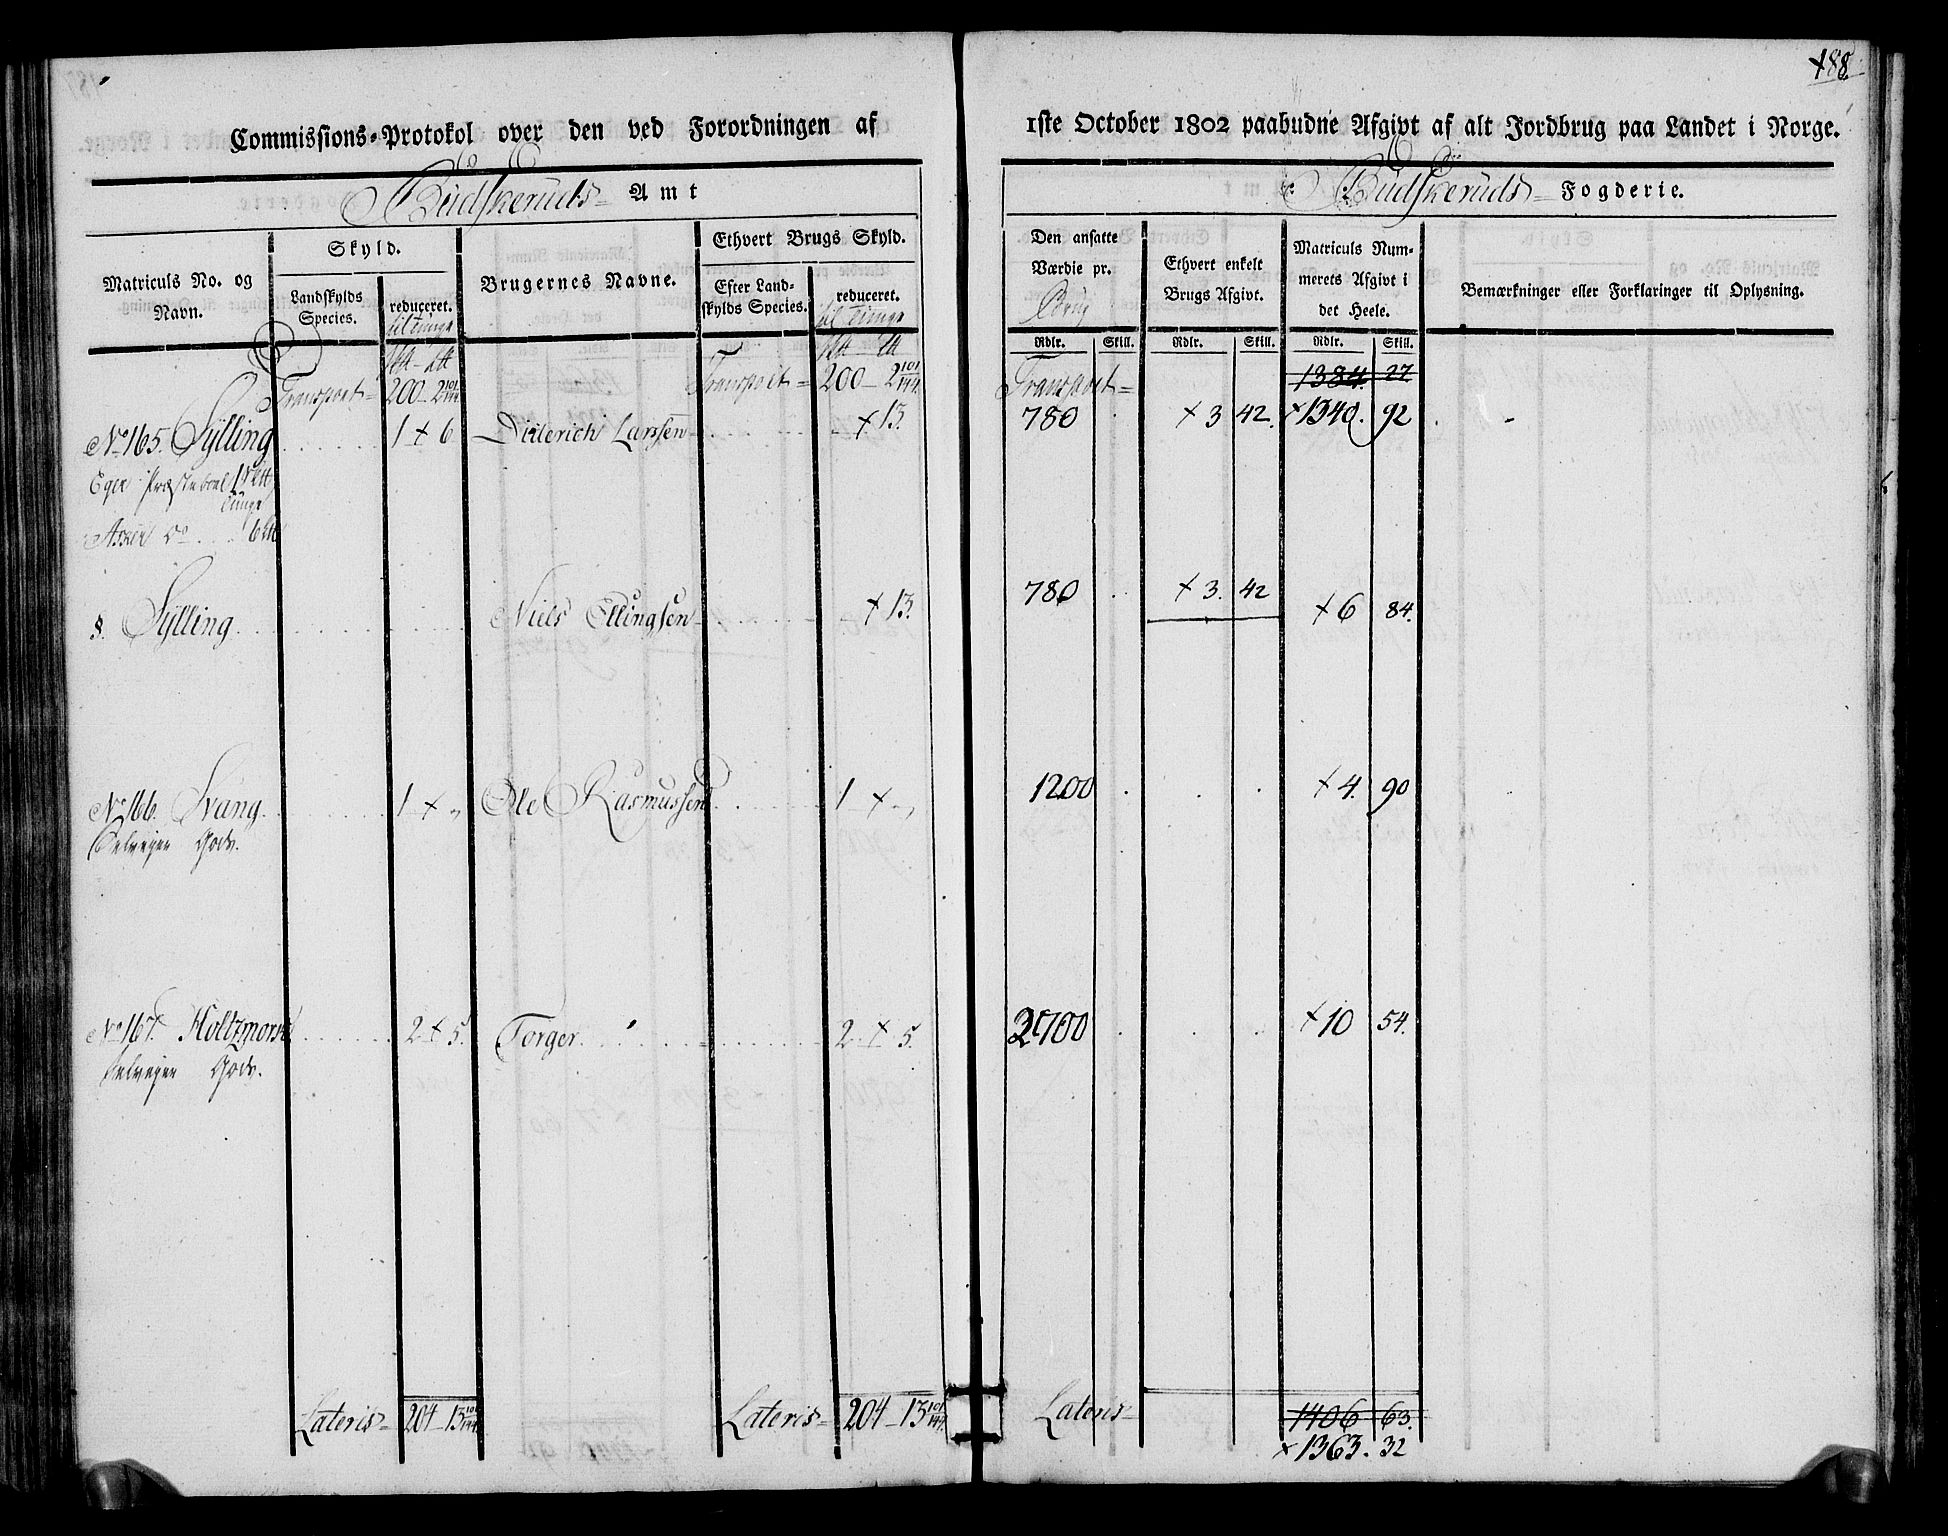 188.
Commissions-Protokol over den ved Forordningen af 1ste October 1802 paabudne Afgivt af alt Jordbrug paa Landet i Norge.
Budskeruds Amt
Budskeruds Fogderie.
Matriculs No. og Navn.
Skyld.
Landskylds Species.
reduceret.
til Tunge
Brugernes Navne.
Ethvert Brugs Skyld.
Efter Landskylds Species.
reduceret.
til Tunge
Den ansatte Værdie pr.
Ethvert enkelt Brugs Afgivt.
Matriculs Nummerets Afgivt i det Heele.
Bemærkninger eller Forklaringer til Oplysning.
Rdlr. Skill. Rdlr. Skill. Rdlr. Skill.
Transport 200 - 2 101/144 Transport 200 - 2 101/144 Transport 1384. 27
No 165. Sylling 1 + 6 Diderich Larssen + 13. 780 + 3 42. + 1340. 92
Eger Præsteboel
Tunge
Asker do
§. Sylling Niels Ellingsen + 13. 780 + 3. 42 + 6 84.
No 166. Svang 1 + „ Ole Rasmussen 1 + „ 1200 + 4. 90
Selveyer Gods.
No 167. Holtzmorst 2 + 5. Torger 2 + 5. 2700 + 10 54.
Selveyer Gods.
Lateris 204 - 13 101/144 Lateris 204 - 13 101/144 Lateris 1406 63.
+ 1363. 32